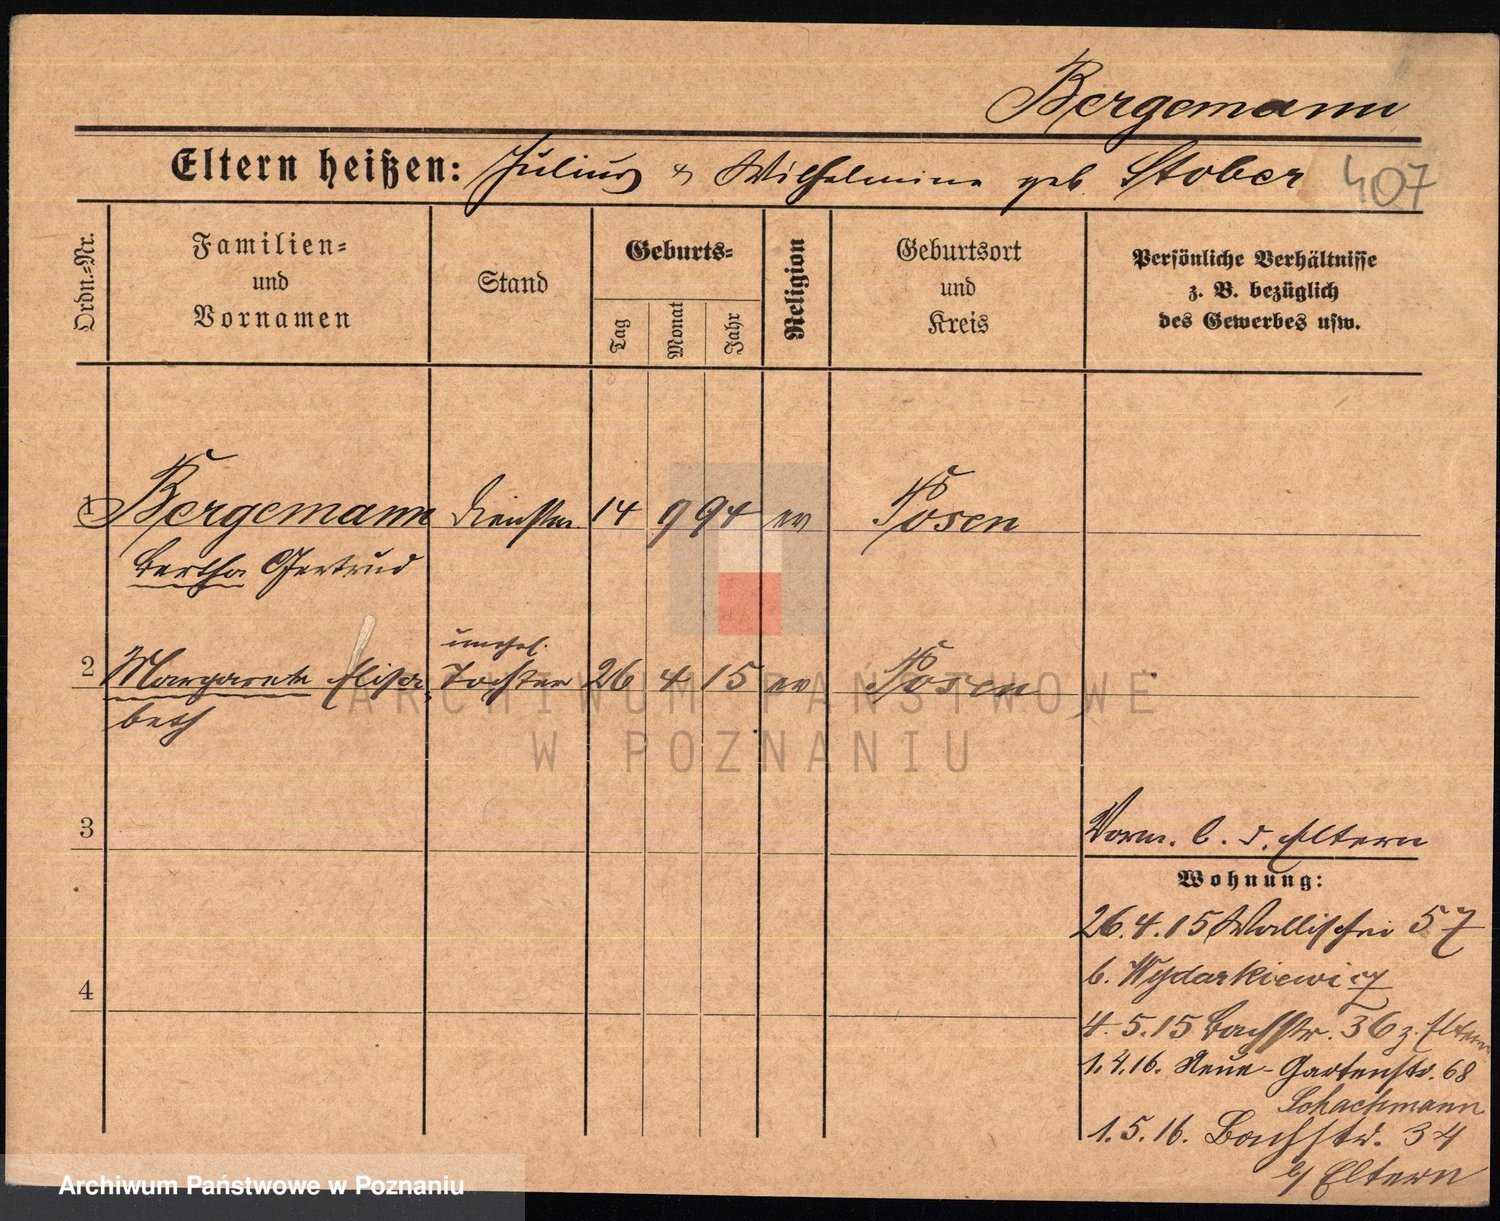 Bergemann
Eltern heißen: Julius & Wilhelmine geb. Stober 407
Ordn.-Nr.
Familien-
und
Vornamen
Stand
Geburts-
Tag
Monat
Jahr
Religion
Geburtsort
und
Kreis
Persönliche Verhältnisse
z. B. bezüglich
des Gewerbes usw.
1 Bergemann Dienstm. 14 9 94 ev Posen
Bertha Gertrud
unehel.
2 Margarete Elisa- Tochter 26 4 15 ev Posen
beth
ARCHIWUM PAŃSTWOWE
W POZNANIU
3
Vorm. b. d. Eltern
Wohnung:
26.4.15 Wallischei 57
b. Wydarkiewicz
4
4.5.15 Bachstr. 36 z. Eltern
1.4.16. Neue-Gartenstr. 68
Schachmann
1.5.16. Bachstr. 34
b/ Eltern
Archiwum Państwowe w Poznaniu